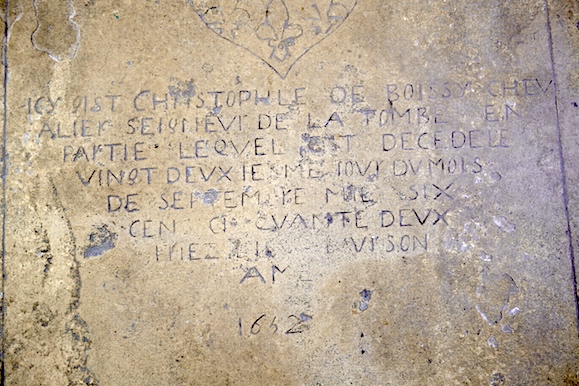 ICY GIST CHRISTOPHLE DE BOISSY CHEV
ALIER SEIGNEUR DE LA TOMBE EN
PARTIE LEQUEL EST DECEDE LE
VINGT DEUXIEME JOUR DU MOIS
DE SEPTEMBRE MIL SIX
CEN CINQUANTE DEUX
PRIEZ DIEU POUR SON
AME
1652